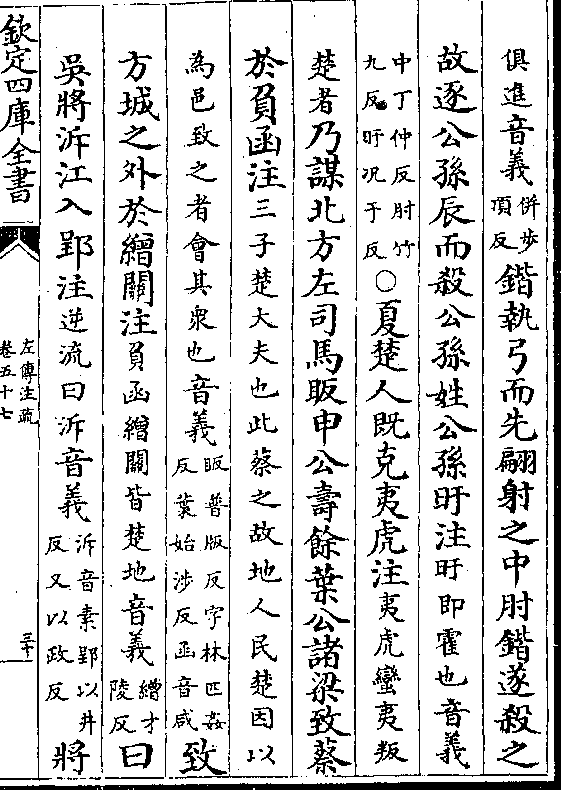 俱進音義併步項反鍇執弓而先翩射之中肘鍇遂殺之
故逐公孫辰而殺公孫姓公孫盱注盱即霍也音義
中丁仲反肘竹九反盱况于反○夏楚人既克夷虎注夷虎蠻夷叛
楚者乃謀北方左司馬眅申公壽餘葉公諸梁致蔡
於負函注三子楚大夫也此蔡之故地人民楚因以
為邑致之者會其衆也音義眅普版反字林匹姦反葉始涉反函音咸致
方城之外於繒關注負函繒關皆楚地音義繒才陵反曰
吳將泝江入郢注逆流曰泝音義泝音素郢以井反又以政反將
欽定四庫全書
左傳注疏
卷五十七
三十